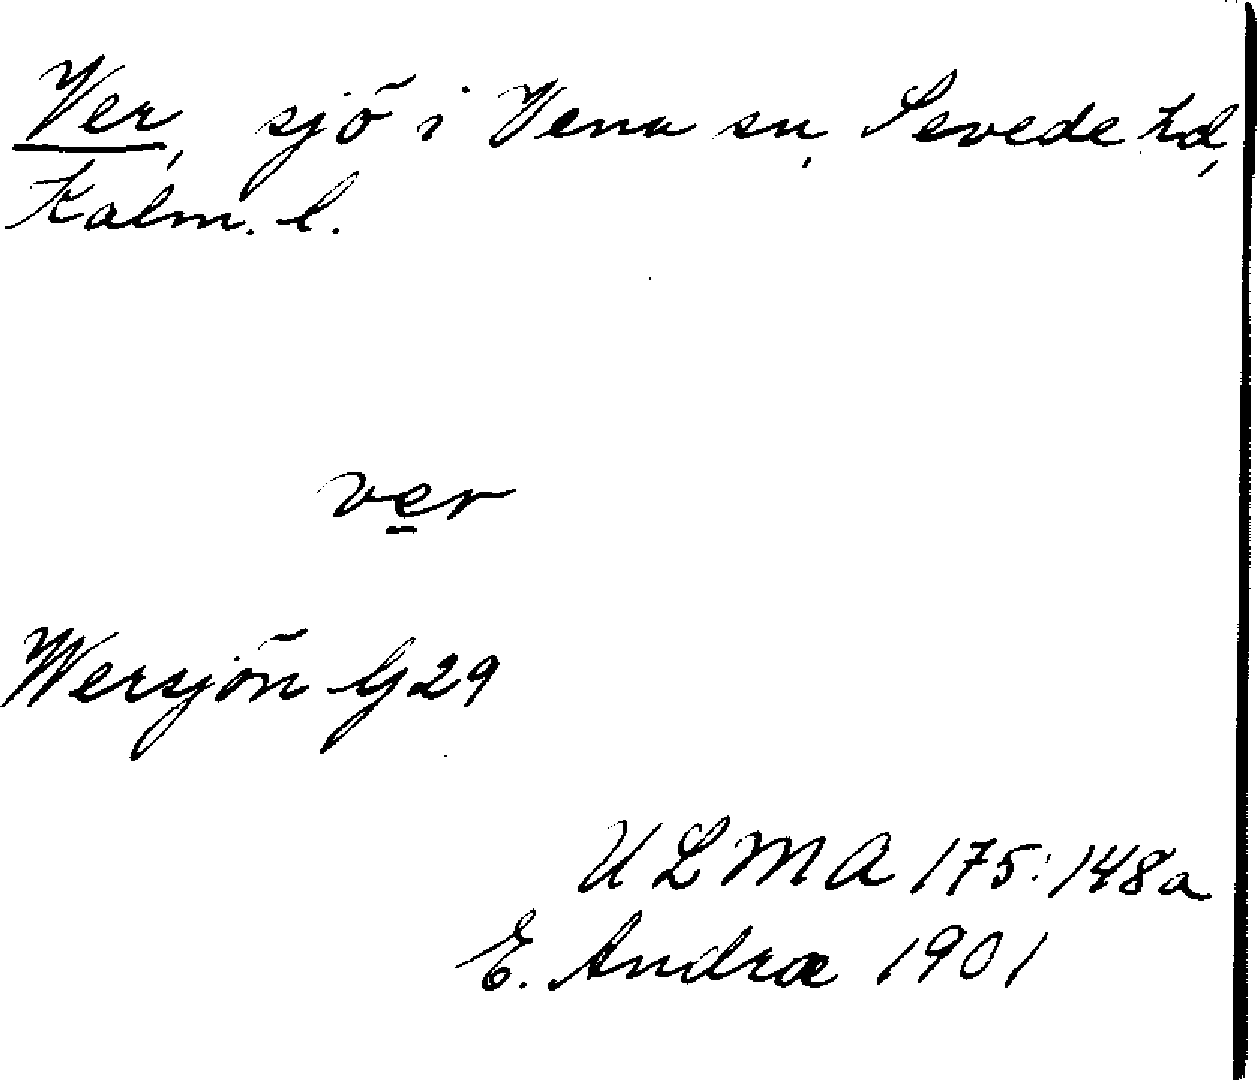 Ver, sjö i Vena sn, Sevede hd,
Kalm. l.
ver
Wersjön G 29
ULMA 175:148a
E. Andræ 1901